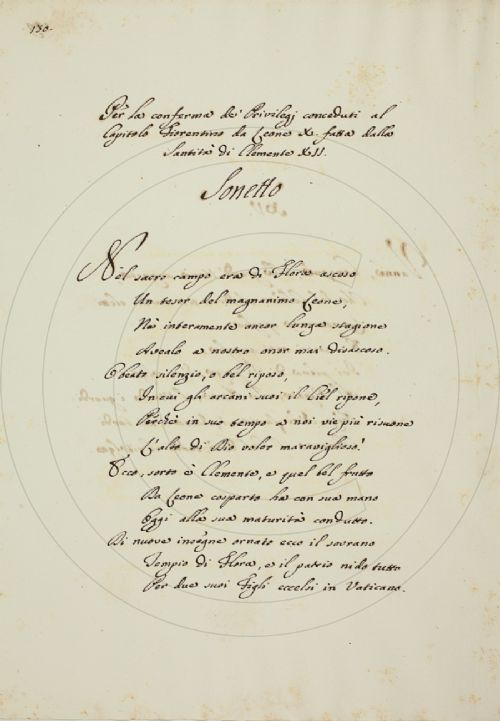 130.
Per la conferma de' Privilegi conceduti al
Capitolo Fiorentino da Leone X. fatta dalla
Santità di Clemente XII.
Sonetto
Nel sacro campo era di Flora ascoso
Un tesor del magnanimo Leone,
Nè interamente ancor lunga stagione
Avealo a nostro onor mai disascoso.
O beato silenzio, o bel riposo,
In cui gli arcani suoi il Ciel ripone,
Perchè in suo tempo a noi vie più risuone
L'alto di Dio valor maraviglioso!
Ecco, sorto è Clemente, e quel bel frutto
Da Leone cosparto ha con sua mano
Oggi alla sua maturità condutto.
Di nuove insegne ornato ecco il sovrano
Tempio di Flora, e il patrio nido tutto
Per due suoi Figli eccelsi in Vaticano.